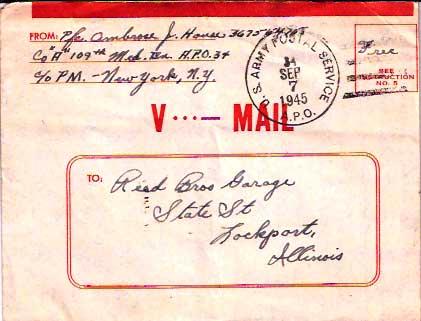 FROM: Pfc. Ambrose J. House
Co "A" 109th Med. Bn. A.P.O. 34
c/o P.M. - New York, N.Y.
U.S. ARMY POSTAL SERVICE
SEP
7
1945
A.P.O.
Free
SEE
INSTRUCTION
NO. 5
V ···— MAIL
TO: Reed Bros Garage
State St
Lockport,
Illinois